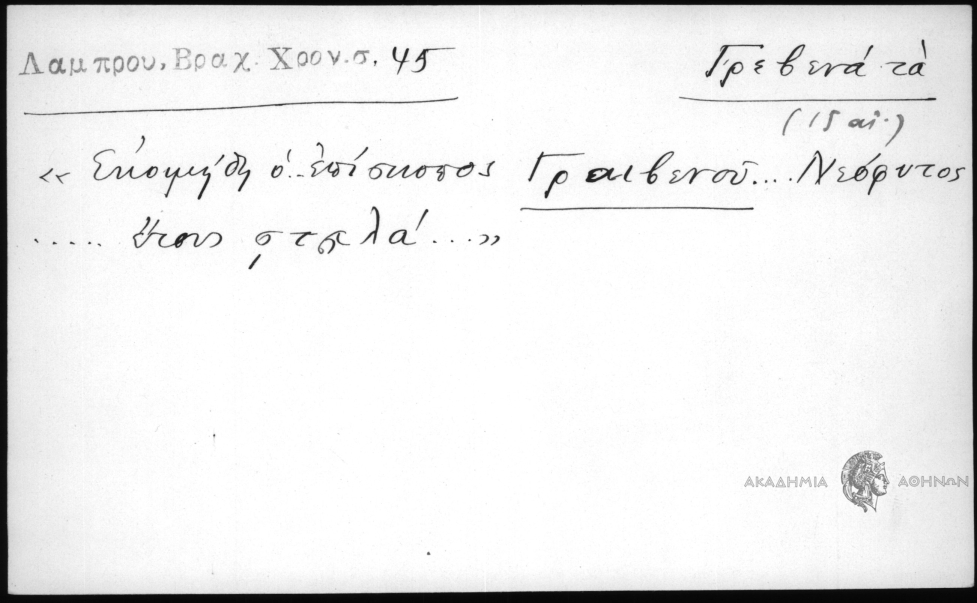 Λαμπρου, Βραχ. Χρον. σ. 45
Γρεβενά τὰ
(15 αἰ.)
«Ἐκοιμήθη ὁ..ἐπίσκοπος Γραιβενοῦ.... Νεόφυτος
..... ἔτους ϛ λά...»
ΑΚΑΔΗΜΙΑ ΑΘΗΝΩΝ